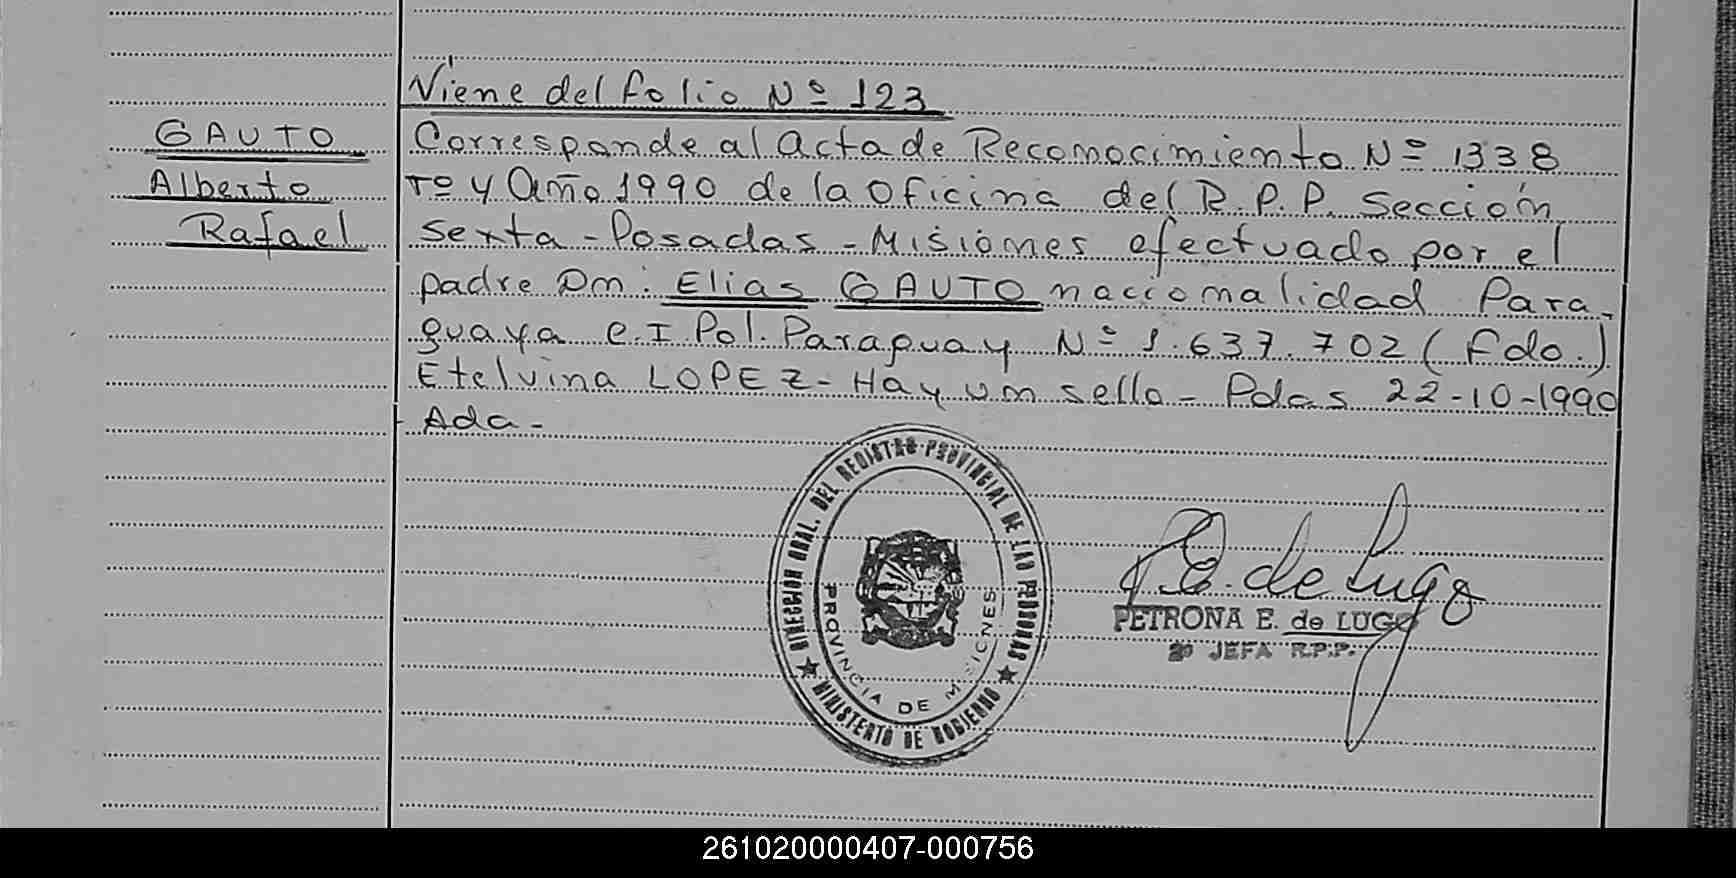 Viene del folio Nº 123
GAUTO
Alberto
Rafael
Corresponde al Acta de Reconocimiento Nº 1338
Tº 4 Año 1990 de la Oficina del R.P.P. Sección
Sexta - Posadas - Misiones efectuado por el
padre Dn: Elias GAUTO naccionalidad Para-
guaya C.I Pol. Paraguay Nº 1.637.702 (Fdo.)
Etelvina LOPEZ - Hay un sello - Pdas 22-10-1990
Ada -
DIRECCION GRAL. DEL REGISTRO PROVINCIAL DE LAS PERSONAS
PROVINCIA DE MISIONES
MINISTERIO DE GOBIERNO
P.E. de Lugo
PETRONA E. de LUGO
2º JEFA R.P.P.
261020000407-000756